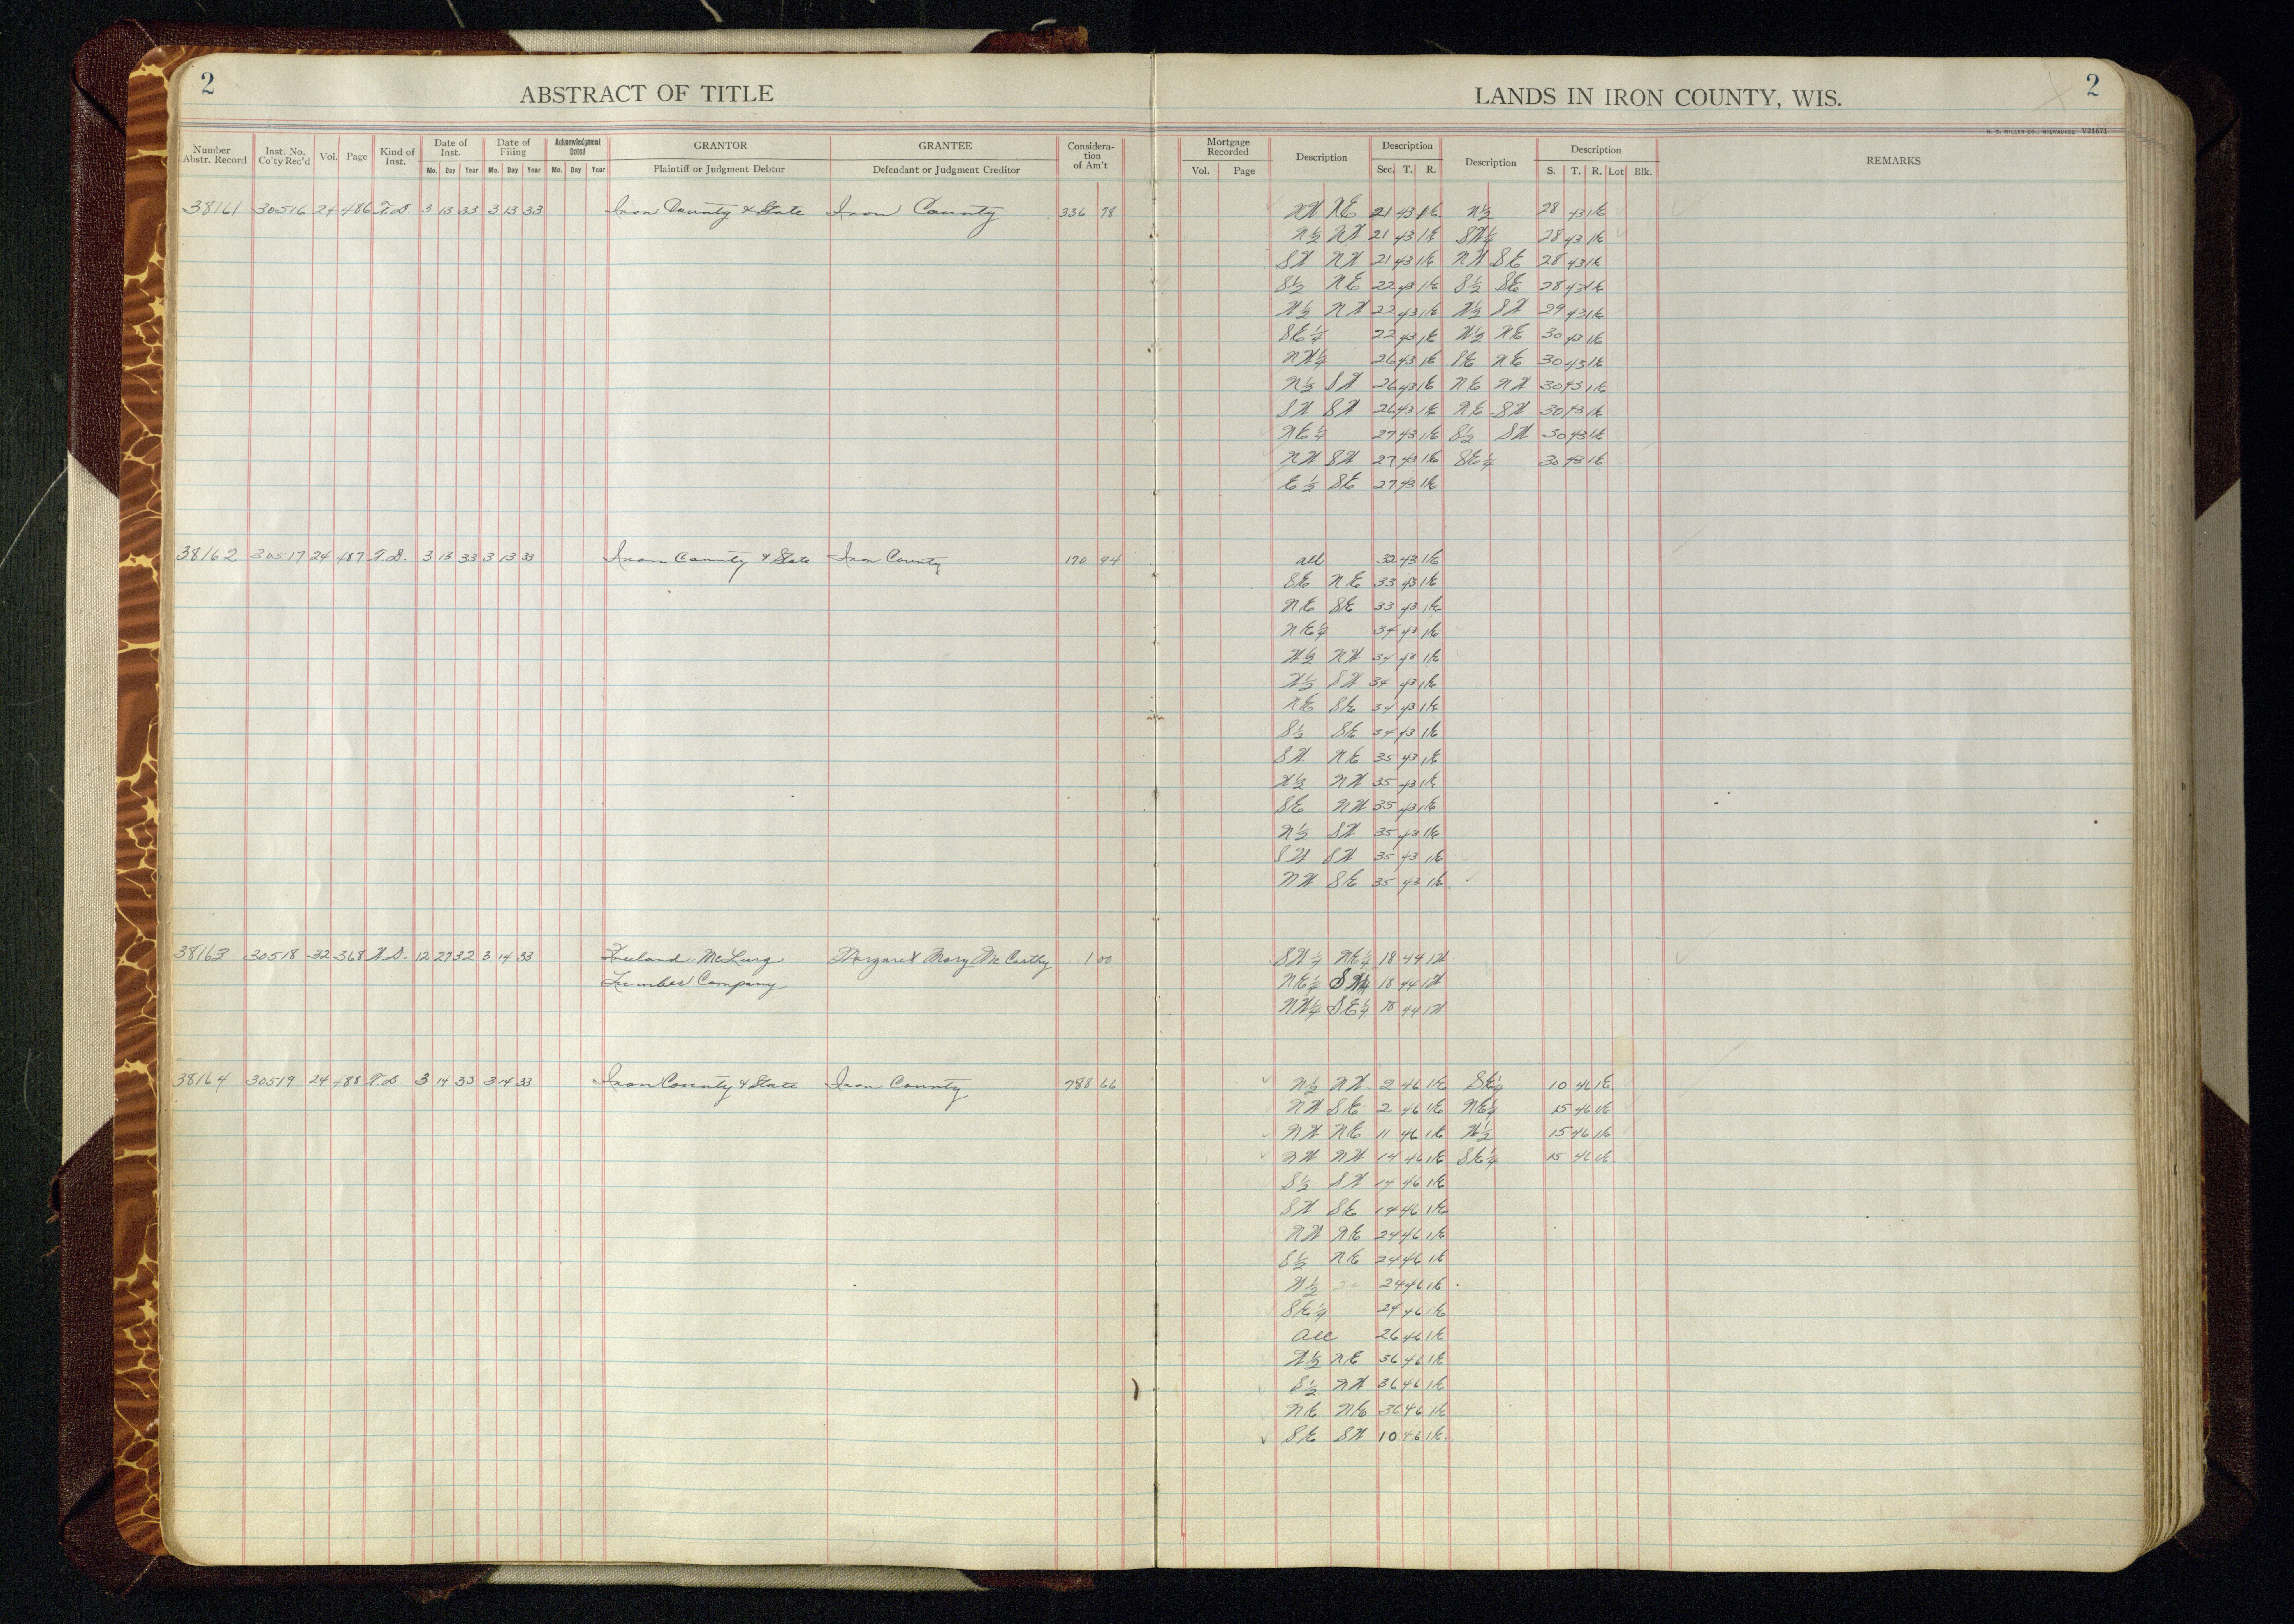 2
ABSTRACT OF TITLE
LANDS IN IRON COUNTY, WIS.
2
H. C. MILLER CO., MILWAUKEE Y21671
Number Abstr. Record | Inst. No. Co'ty Rec'd | Vol. | Page | Kind of Inst. | Date of Inst. Mo. Day Year | Date of Filing Mo. Day Year | Acknowledgment Dated Mo. Day Year | GRANTOR Plaintiff or Judgment Debtor | GRANTEE Defendant or Judgment Creditor | Consideration of Am't | Mortgage Recorded Vol. Page | Description | Description Sec. T. R. | Description | Description S. T. R. Lot Blk. | REMARKS
38161 30516 24 486 T.D 3 13 33 3 13 33 Iron County & State Iron County 336 78 NW NE 21 43 1E N½ 28 43 1E
N½ NW 21 43 1E SW¼ 28 43 1E
SW NW 21 43 1E NW SE 28 43 1E
S½ NE 22 43 1E S½ SE 28 43 1E
W½ NW 22 43 1E W½ SW 29 43 1E
SE¼ 22 43 1E W½ NE 30 43 1E
NW¼ 26 43 1E SE NE 30 43 1E
N½ SW 26 43 1E NE NW 30 43 1E
SW SW 26 43 1E NE SW 30 43 1E
NE¼ 27 43 1E S½ SW 30 43 1E
NW SW 27 43 1E SE¼ 30 43 1E
E½ SE 27 43 1E
38162 30517 24 487 T.D. 3 13 33 3 13 33 Iron County & State Iron County 170 94 all 32 43 1E
SE NE 33 43 1E
NE SE 33 43 1E
NE¼ 34 43 1E
W½ NW 34 43 1E
W½ SW 34 43 1E
NE SE 34 43 1E
S½ SE 34 43 1E
SW NE 35 43 1E
W½ NW 35 43 1E
SE NW 35 43 1E
N½ SW 35 43 1E
SW SW 35 43 1E
NW SE 35 43 1E
38163 30518 32 368 W.D. 12 27 32 3 14 33 Freeland McLurg Margaret Mary McCarthy 1 00 SW¼ NE¼ 18 44 1W
Lumber Company NE¼ SW¼ 18 44 1W
NW¼ SE¼ 18 44 1W
38164 30519 24 488 T.D. 3 14 33 3 14 33 Iron County & State Iron County 788 66 N½ NW 2 46 1E SE¼ 10 46 1E
NW SE 2 46 1E NE¼ 15 46 1E
NW NE 11 46 1E W½ 15 46 1E
NW NW 14 46 1E SE¼ 15 46 1E
S½ SW 14 46 1E
SW SE 14 46 1E
NW NE 24 46 1E
S½ NE 24 46 1E
W½ 24 46 1E
SE¼ 24 46 1E
all 26 46 1E
W½ NE 36 46 1E
S½ NW 36 46 1E
NE NE 36 46 1E
SE SW 10 46 1E